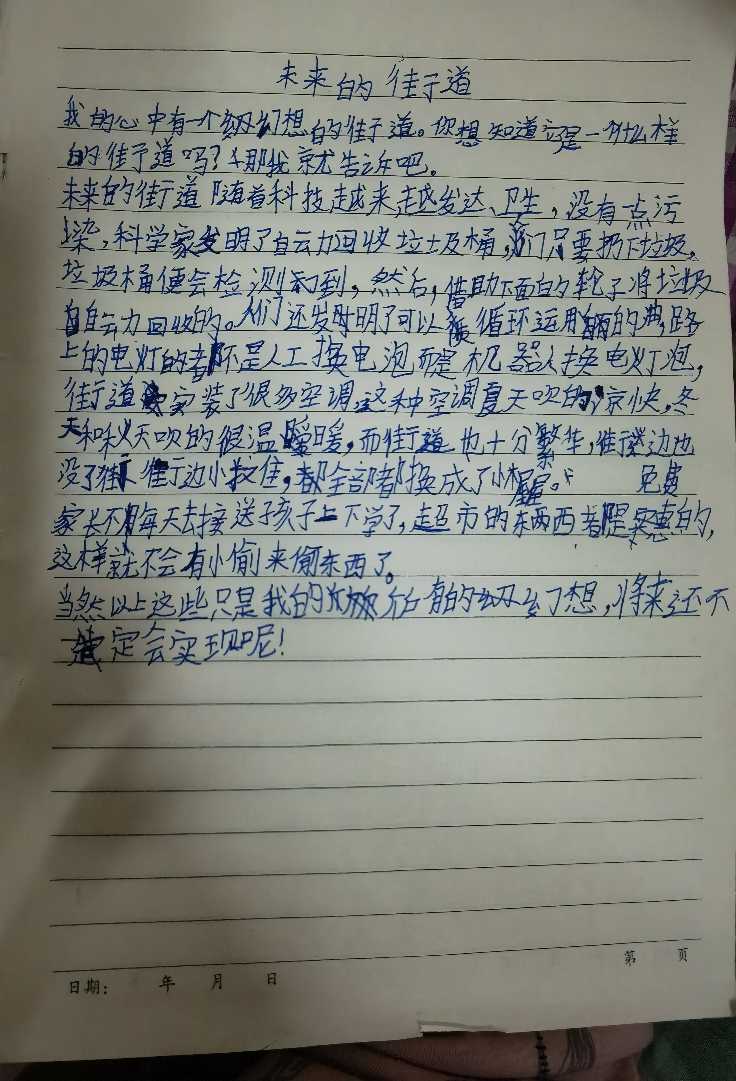 未来的街道
我的心中有一个幻想的街道。你想知道它是一个什么样
的街道吗？那我就告诉吧。
未来的街道随着科技越来越发达、卫生，没有一点污
染，科学家发明了自动回收垃圾桶，人们只要扔下垃圾，
垃圾桶便会检测到，然后，借助下面的轮子将垃圾
自动回收的。人们还发明了可以循环运用的电，路
上的电灯的都不是人工换电泡而是机器人换电灯泡，
街道安装了很多空调，这种空调夏天吹的凉快，冬
天和秋天吹的很温暖，而街道也十分繁华，街道边也
没了街边小摊，都全部都换成了小屋。免费
家长不用每天去接送子孩子上下学了，超市的东西都是实惠的，
这样就不会有小偷来偷东西了。
当然以上这些只是我的所有的幻想，将来还不
一定会实现呢！
日期： 年 月 日
第 页